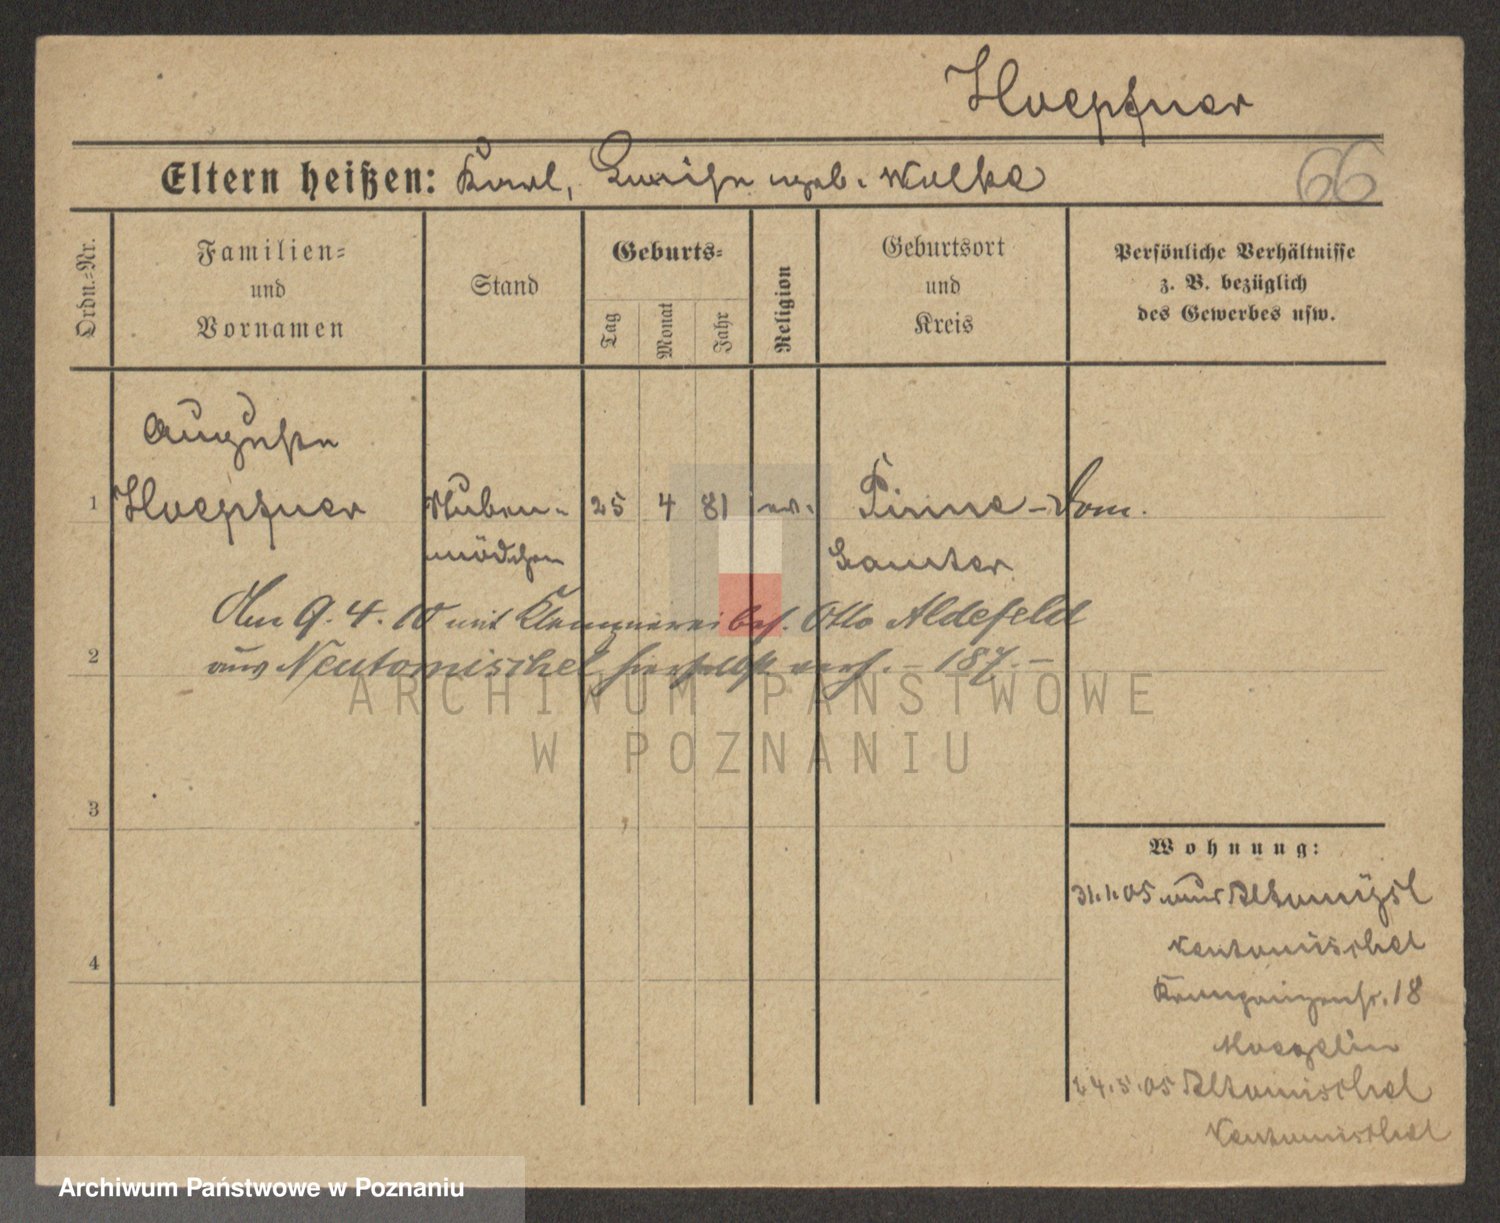 Hoepfner
Eltern heißen: Karl, Luise geb. Wolke
66
Ordn.-Nr.
Familien-
und
Vornamen
Stand
Geburts-
Tag
Monat
Jahr
Religion
Geburtsort
und
Kreis
Persönliche Verhältnisse
z. B. bezüglich
des Gewerbes usw.
Auguste
1 Hoepfner Stuben- 25 4 81 ev. Pinne-Dom.
mädchen Samter
Am 9.4.10 mit Klempnereibes. Otto Aldefeld
2 aus Neutomischel hierselbst verh. – 187. –
ARCHIWUM PAŃSTWOWE
W POZNANIU
3
4
Wohnung:
31.1.05 aus Altomysl
Neutomischel
18
Moegelin
24.5.05 Altomischel
Neutomischel
Archiwum Państwowe w Poznaniu